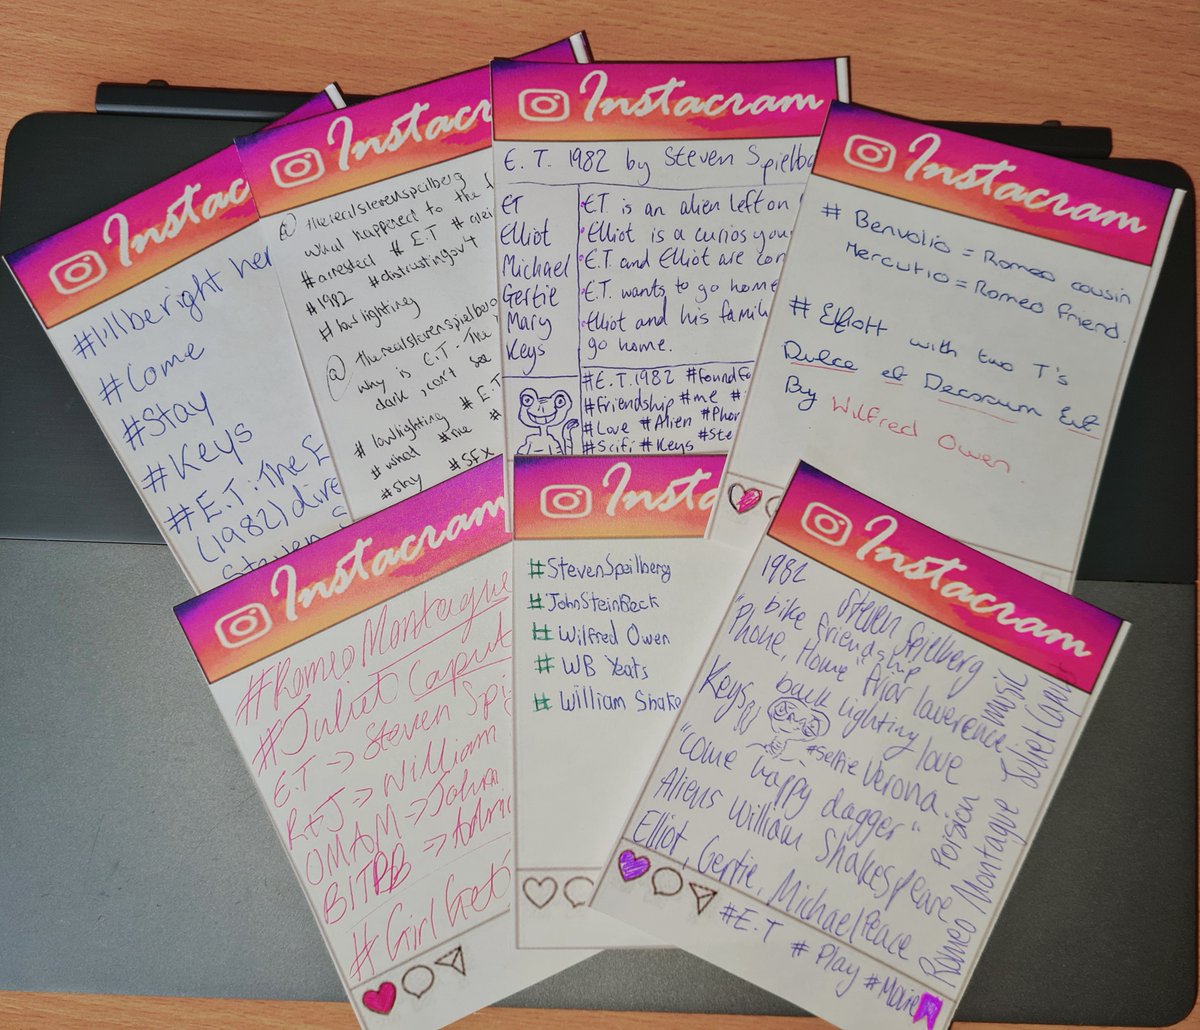 Instac
#I'llberight her
#Come
#Stay
#Keys
#E.T: The E
(1982) dire
Steven S
Instacr
@therealstevenspeilberg
what happened to the
#arrested #E.T #alei
#1982 #distrustingov't
#lowlighting
@therealstevenspeilberg
why is E.T. The
dark, can't see
#lowlighting #E.T
#what #the #
#stay #SFX
Instacram
E.T. 1982 by Steven Spielb
ET
Elliot
Michael
Gertie
Mary
Keys
E.T. is an alien left on
Elliot is a curios you
E.T. and Elliot are con
E.T. wants to go home
Elliot and his famil
go home.
#E.T.1982 #FoundFa
#Friendship #me #
#Love #Alien #Phon
#Scifi #Keys #Ste
Instacram
# Benvolio = Romeo cousin
Mercutio = Romeo friend.
# Elliott with two T's
Dulce et Decorum Est
By Wilfred Owen
Instacram
#Romeo Montague
#Juliet Caput
E.T -> Steven Spi
R+J -> William
OMAM -> John
BITPB -> Adri
#Girl Get
Insta
#StevenSpeilberg
#JohnSteinBeck
#Wilfred Owen
# WB Yeats
# William Shake
Instacram
1982 Steven Spielberg
bike friendship
"Phone, Home" friar laverence
Keys back lighting love
#selfie Verona
"come happy dagger"
Aliens William Shakespeare
Elliot, Gertie, Michael Peace
music
Poision
Juliet Capu
Romeo Montague
#E.T # Play #Movie